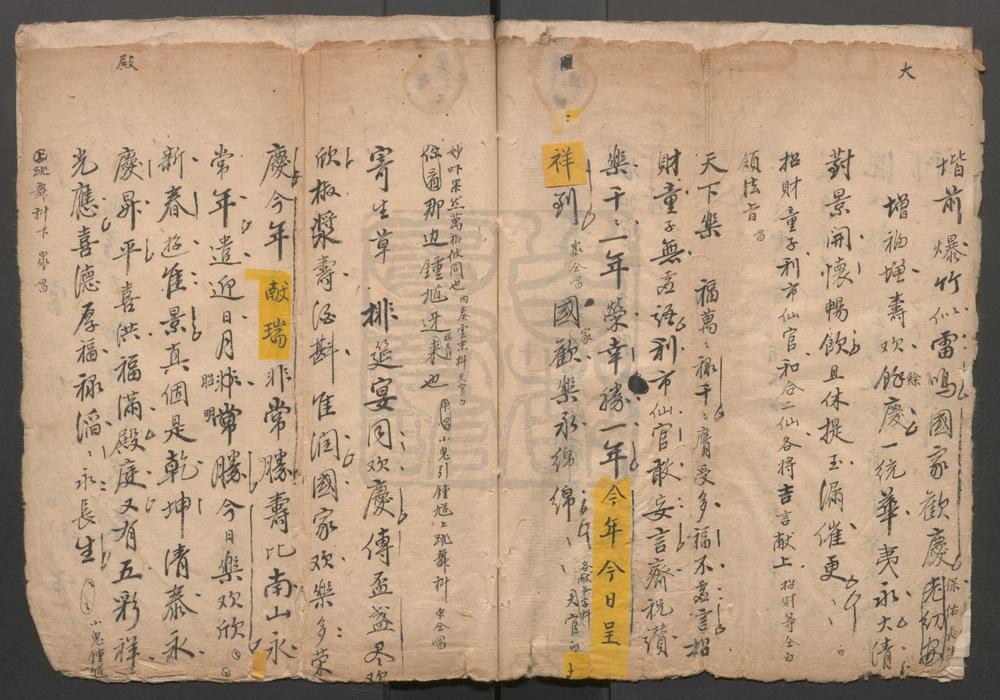 大
堦前爆竹似雷鳴國家歡慶老幼安
保佑
增福增壽欢餘慶一統華夷永大清
對景開懷暢飲且休提玉漏催更
白
招財童子利市仙官和合二仙各将吉言献上 招財等仝白
領法旨 唱
天下樂 福萬:禄千:膺受多福不妄言招
財童子無妄语利市仙官敢妄言齊祝讃
樂千:一年榮幸勝一年今年今日呈
祥到 衆仝唱 國家歡樂永綿綿 天官白
妙吓果然萬福攸同也 内奏雲末科 天官白
你看那边鍾馗迓来也 小鬼引鍾馗上跳舞科 仝唱
寄生草 排筵宴同欢慶傳盃盞冬欢
欣椒漿壽酒斟 惟润國家欢樂多荣
慶今年献瑞非常勝壽比南山永
常年遣迎日月昭明非常勝今日樂欢欣
新春 景真個是乾坤清泰永
慶昇平喜洪福滿殿庭又有五彩祥
光應喜德厚福禄滔:永長生 小鬼鍾馗
跳舞科下 衆唱
殿